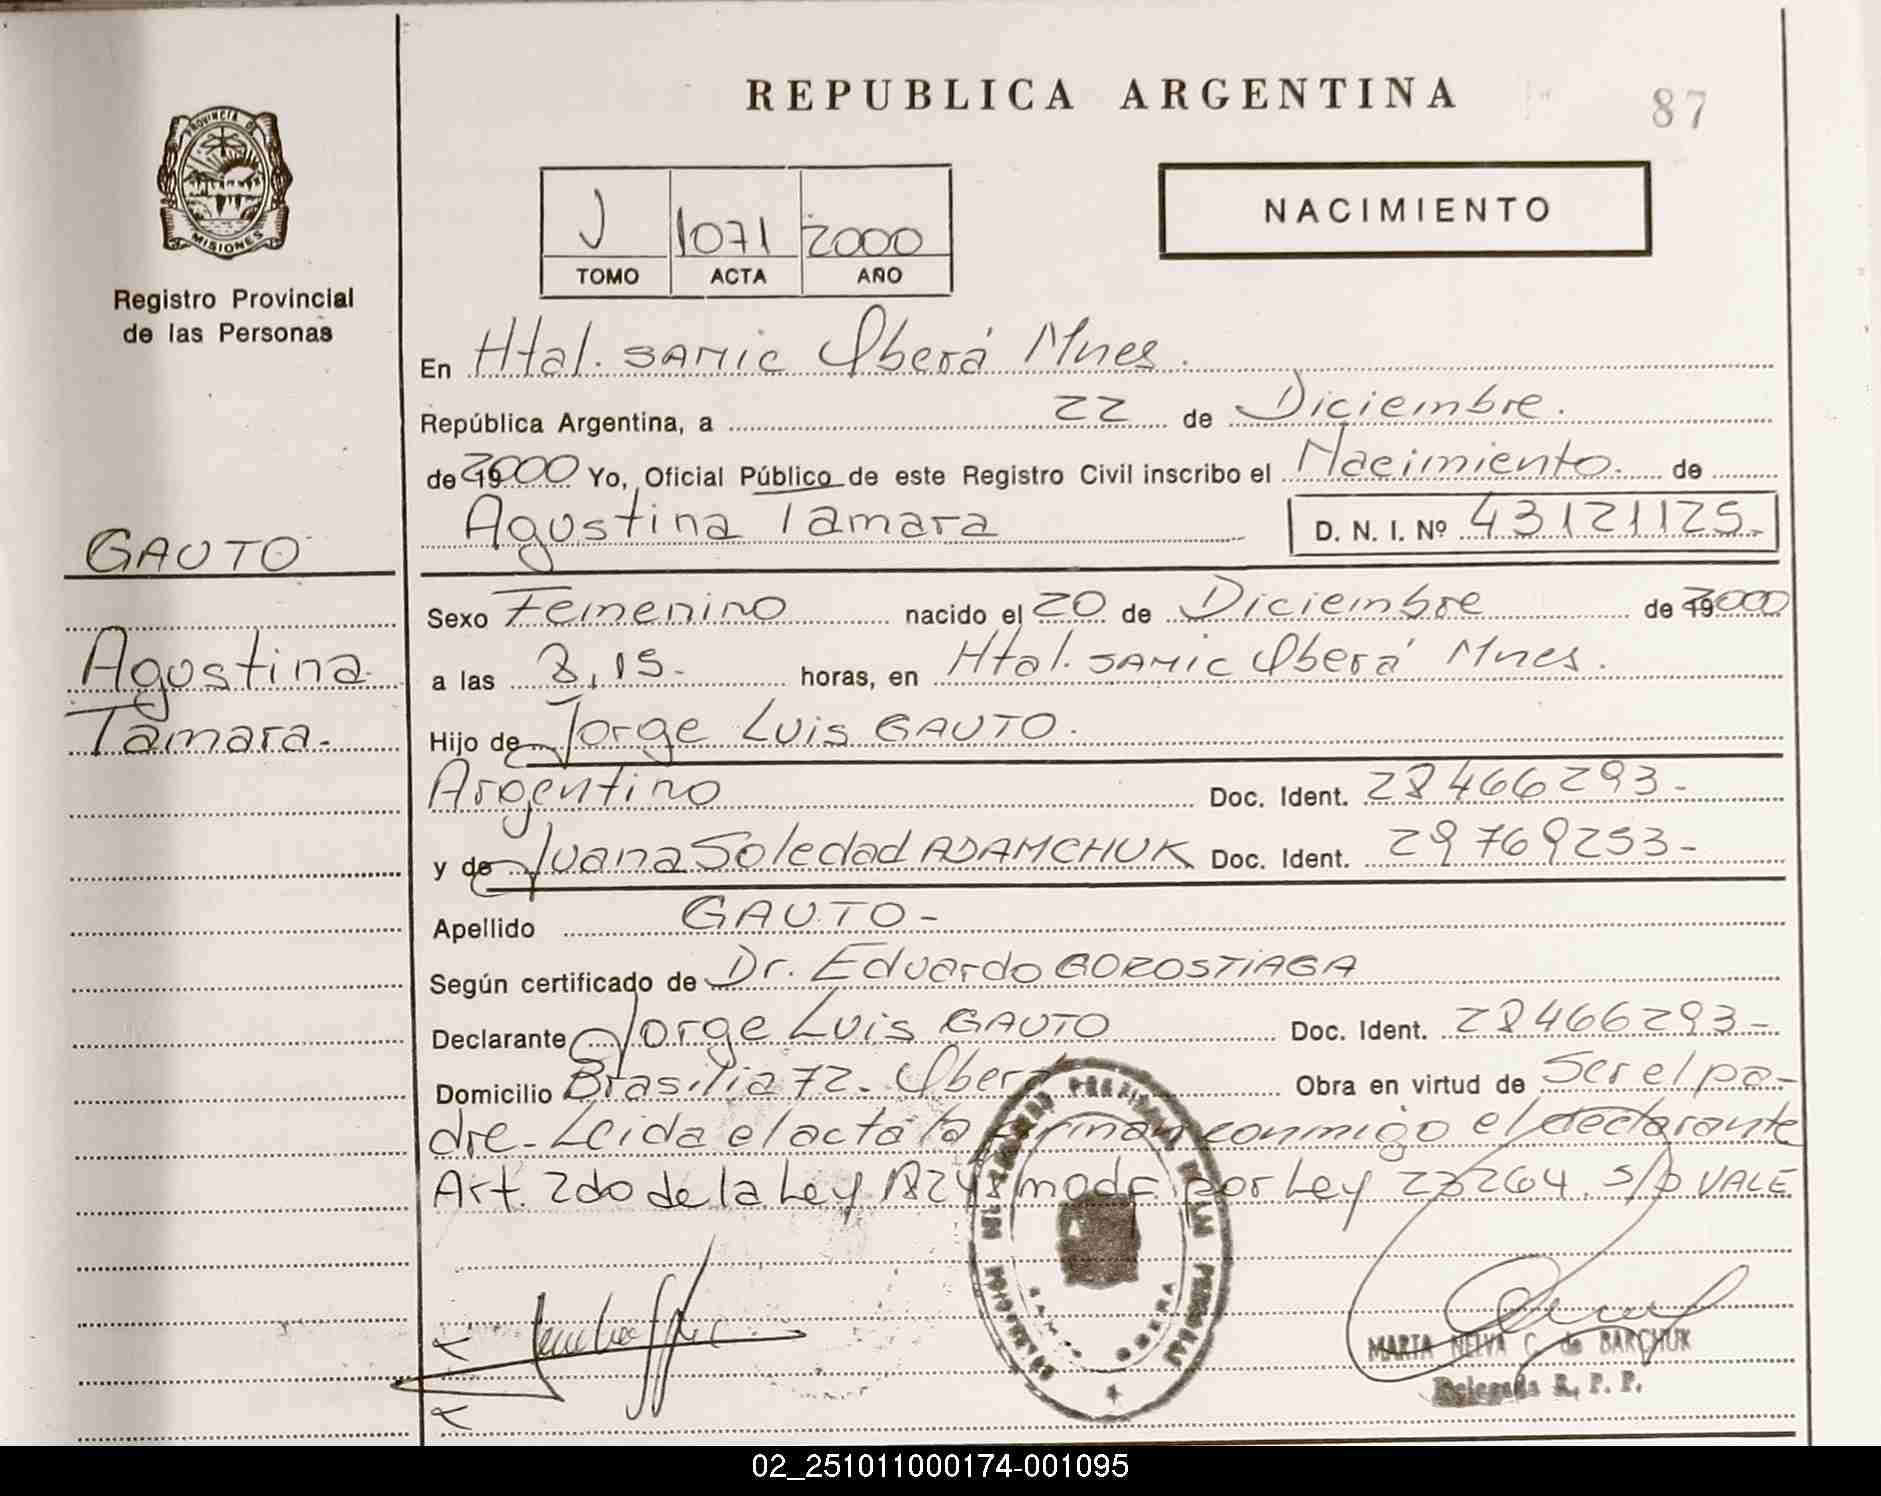 REPUBLICA ARGENTINA
87
PROVINCIA DE
MISIONES
Registro Provincial
de las Personas
J 1071 2000
TOMO ACTA AÑO
NACIMIENTO
En Htal. SAMIC Oberá Mnes.
República Argentina, a 22 de Diciembre.
de 19 2000 Yo, Oficial Público de este Registro Civil inscribo el Nacimiento. de
Agustina Tamara D. N. I. Nº 43121125.-
GAUTO
Agustina
Tamara.-
Sexo Femenino nacido el 20 de Diciembre de 19 2000
a las 8,15.- horas, en Htal. SAMIC Oberá Mnes.
Hijo de Jorge Luis GAUTO.
Argentino Doc. Ident. 28466293-
y de Juana Soledad ADAMCHUK Doc. Ident. 29769253-
Apellido GAUTO-
Según certificado de Dr. Eduardo GOROSTIAGA
Declarante Jorge Luis GAUTO Doc. Ident. 28466293-
Domicilio Brasilia 72- Oberá Obra en virtud de Ser el pa-
dre- Leida el acta la firman conmigo el declarante
Art. 2do de la Ley 18248 modf. por Ley 23264. s/p VALE.
MARTA NELVA C. de BARCHUK
Delegada R. P. P.
02_251011000174-001095